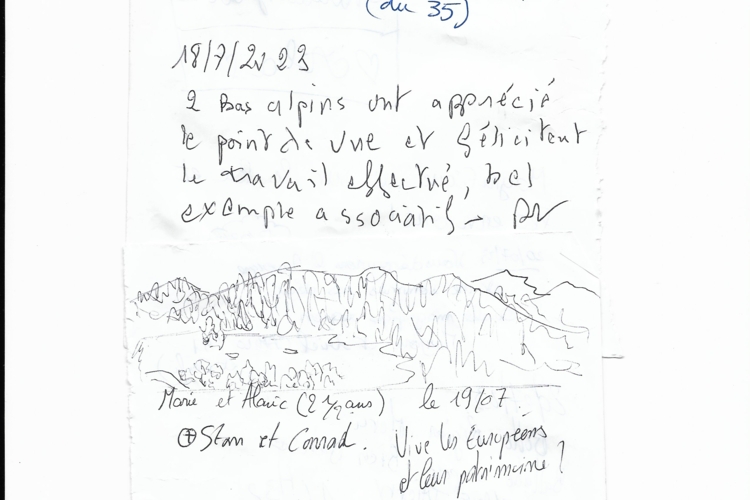 (du 35)
18/7/2023
2 Bas alpins ont apprécié
le point de vue et félicitent
le travail effectué, bel
exemple associatif -
Marie et Alaric (2 ans) le 19/07.
Stan et Conrad. Vive les Européens
et leur patrimoine !